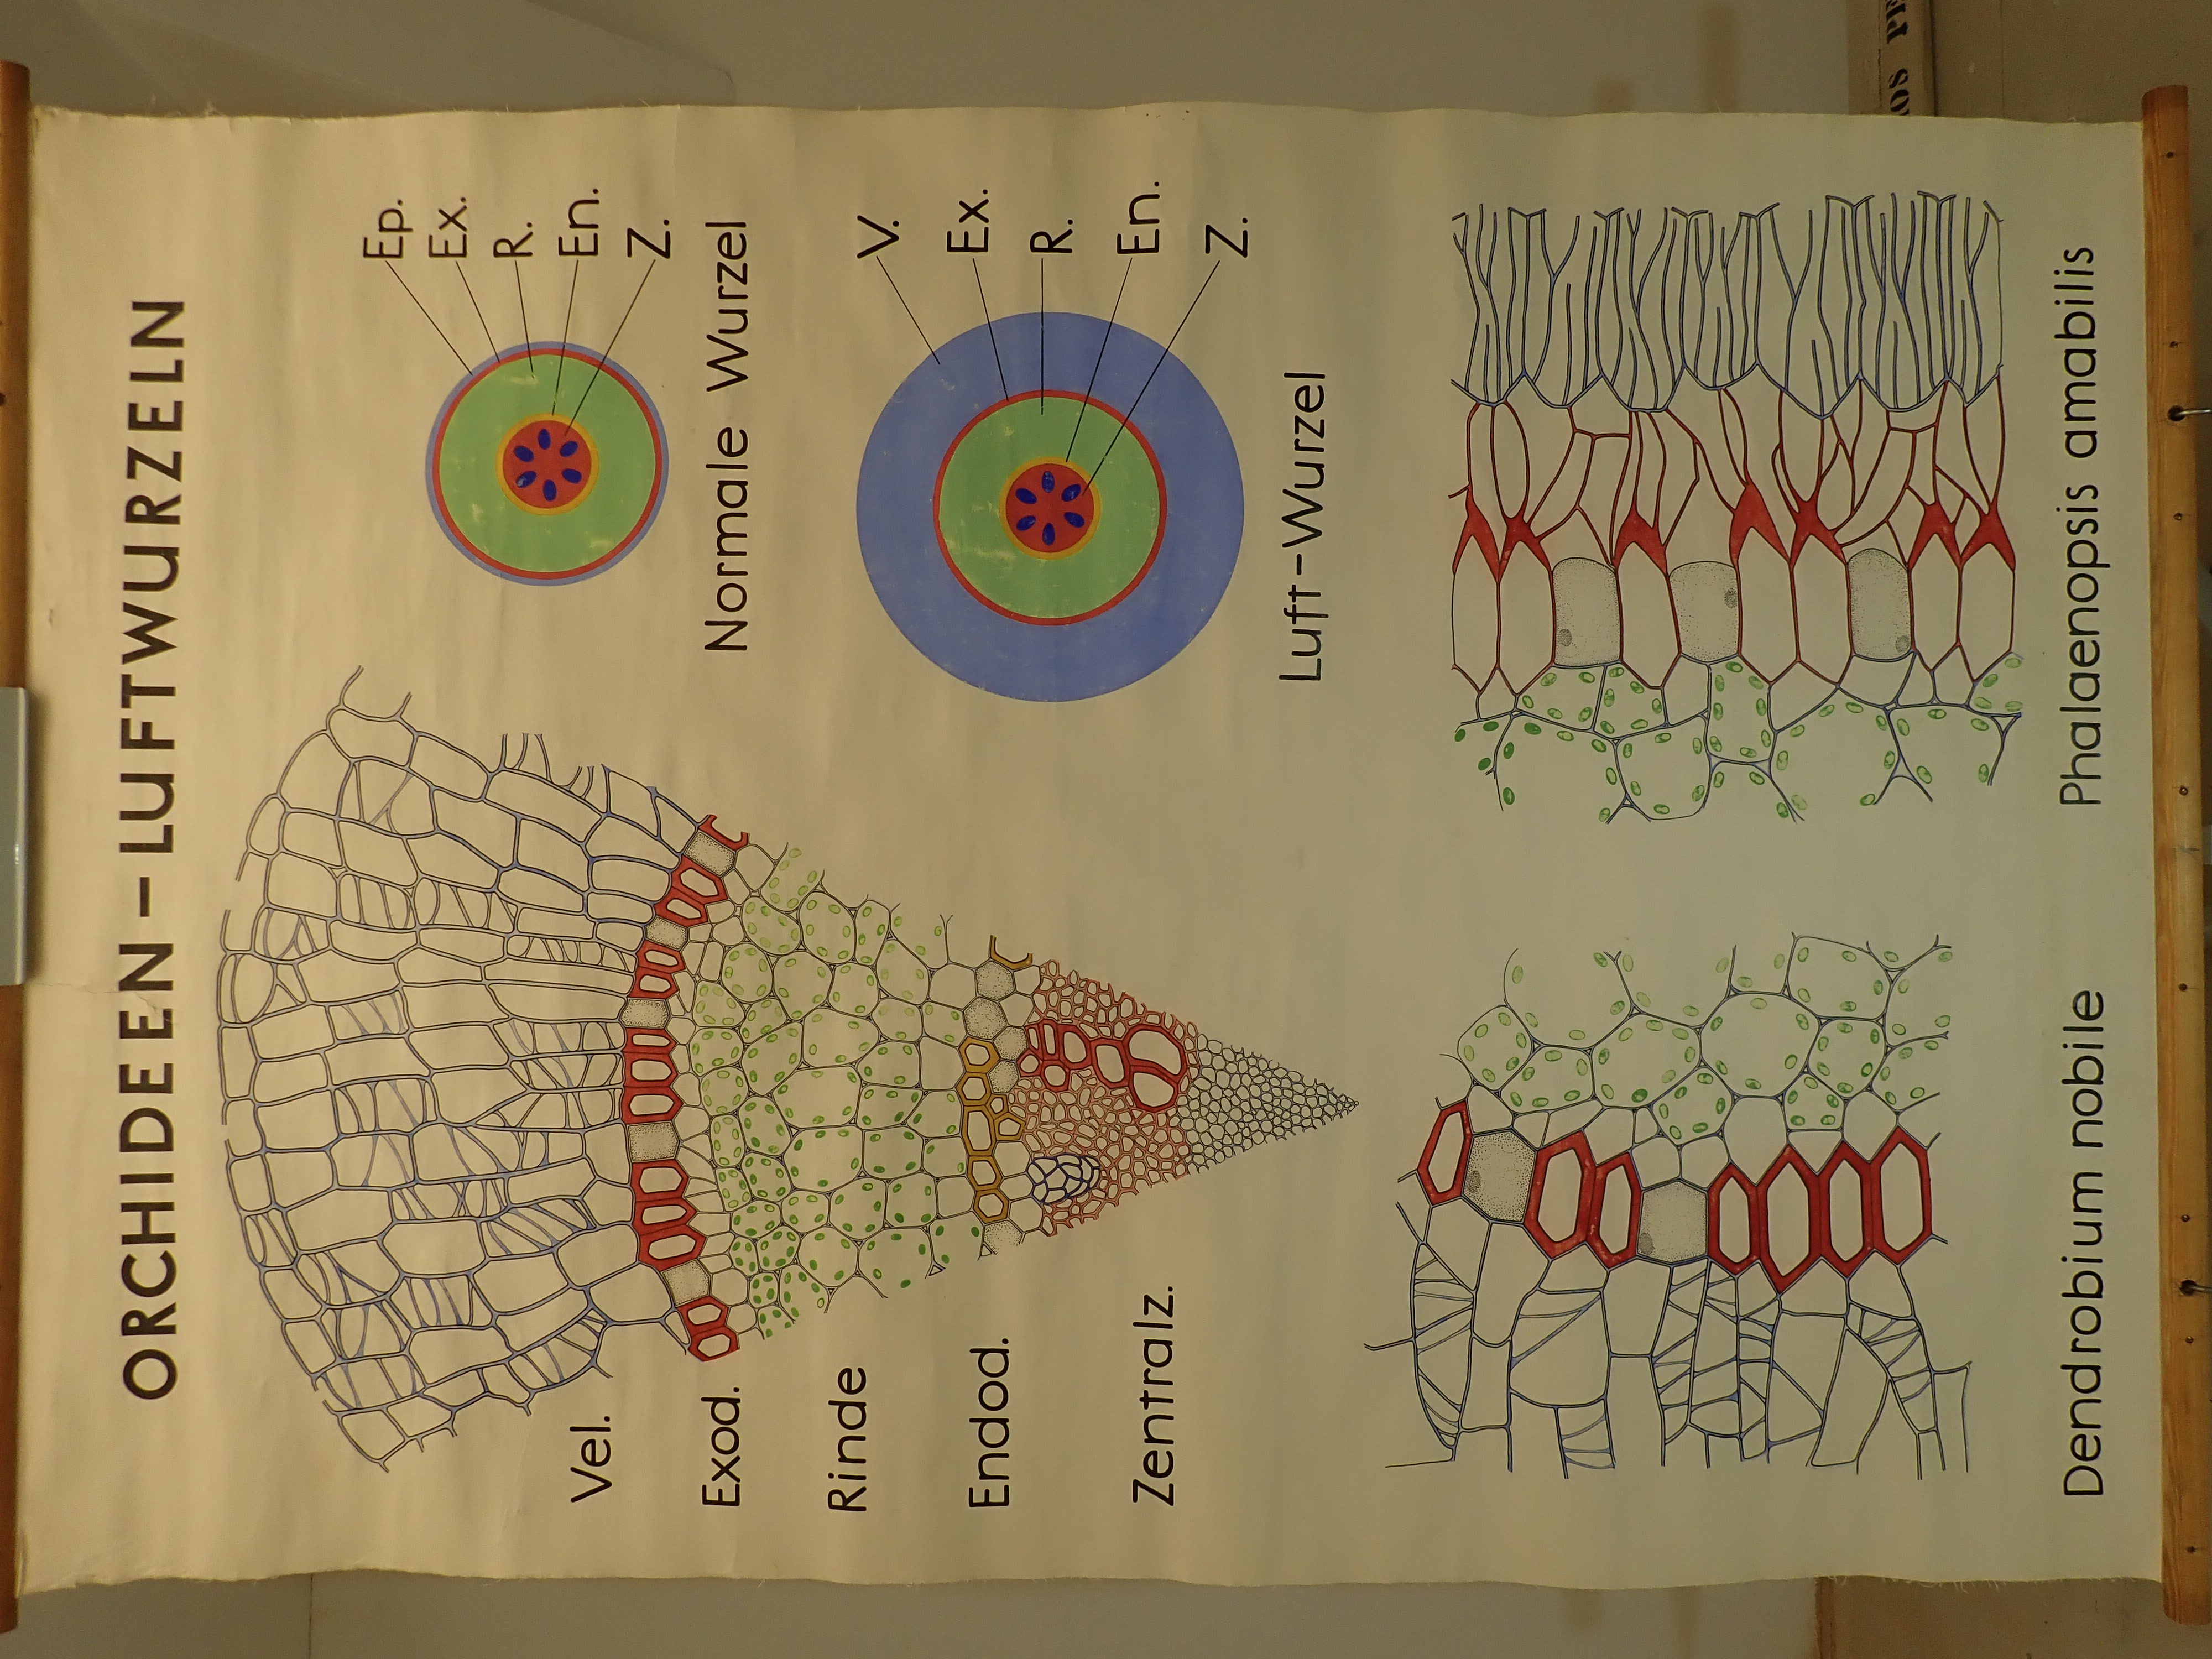 ORCHIDEEN – LUFTWURZELN
Ep.
Ex.
R.
En.
Z.
Normale Wurzel
V.
Ex.
R.
En.
Z.
Luft-Wurzel
Vel.
Exod.
Rinde
Endod.
Zentralz.
Dendrobium nobile
Phalaenopsis amabilis